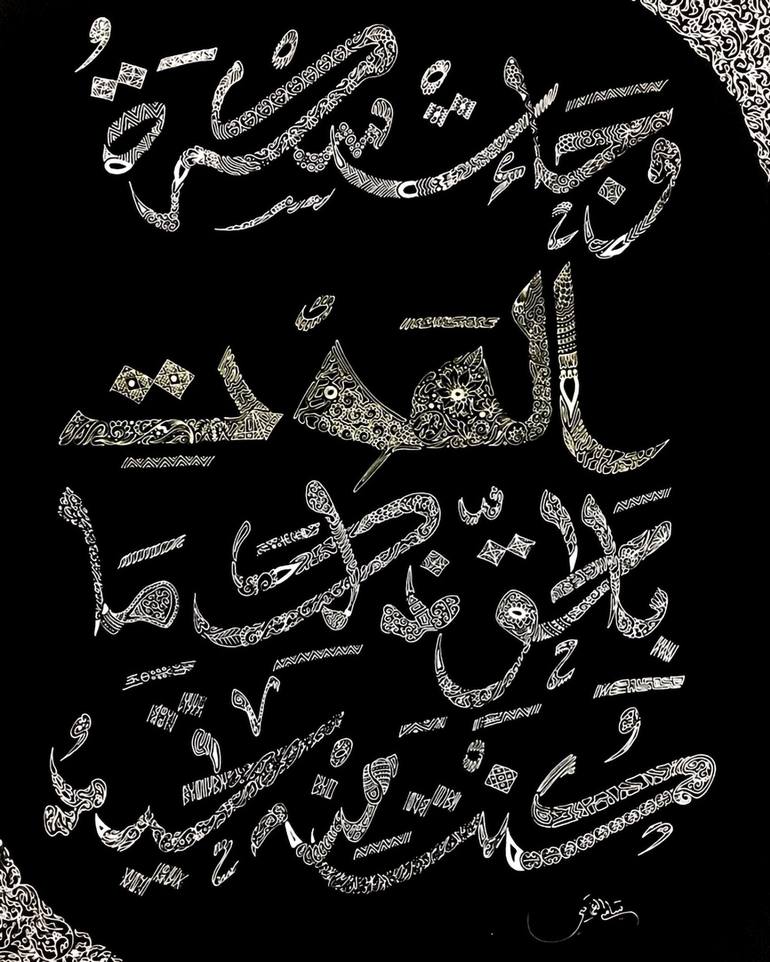 وَجَاءَتْ سَكْرَةُ
الْمَوْتِ
بِالْحَقِّ ذَلِكَ مَا
كُنْتَ مِنْهُ تَحِيدُ